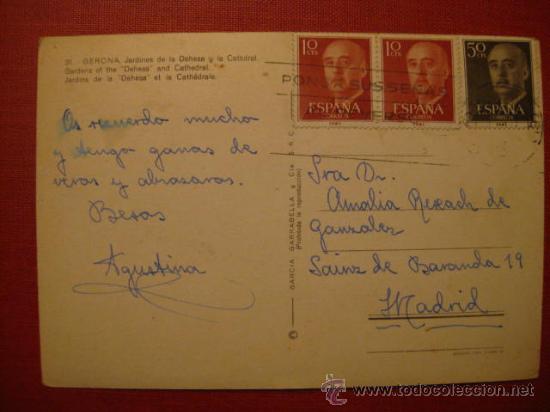 31. - GERONA. Jardines de la Dehesa y la Catedral.
Gardens of the "Dehesa" and Cathedral.
Jardins de la "Dehesa" et la Cathédrale.
Os recuerdo mucho
y tengo ganas de
veros y abrazaros.
Besos
Agustina
GARCIA GARRABELLA y Cía
(Prohibida la reproducción)
10 CTS
ESPAÑA
CORREOS
10 CTS
ESPAÑA
CORREOS
50 CTS
ESPAÑA
CORREOS
PONGA SUS SEÑAS
Sra Dr.
Amalia Rexach de
Gonzalez
Sainz de Baranda 19
Madrid
todocoleccion.net